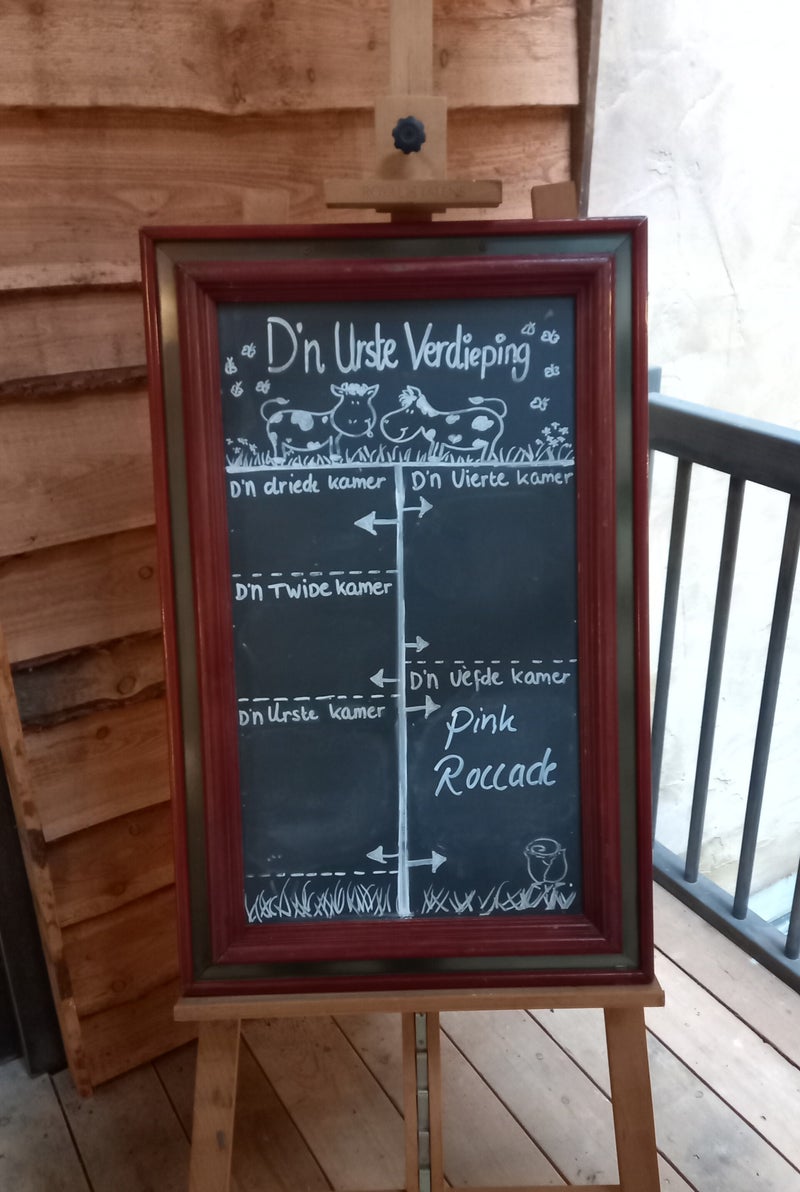 D'n Urste Verdieping
D'n driede kamer
D'n Vierte kamer
D'n TWiDe kamer
D'n Vèfde kamer
D'n Urste kamer
Pink
Roccade